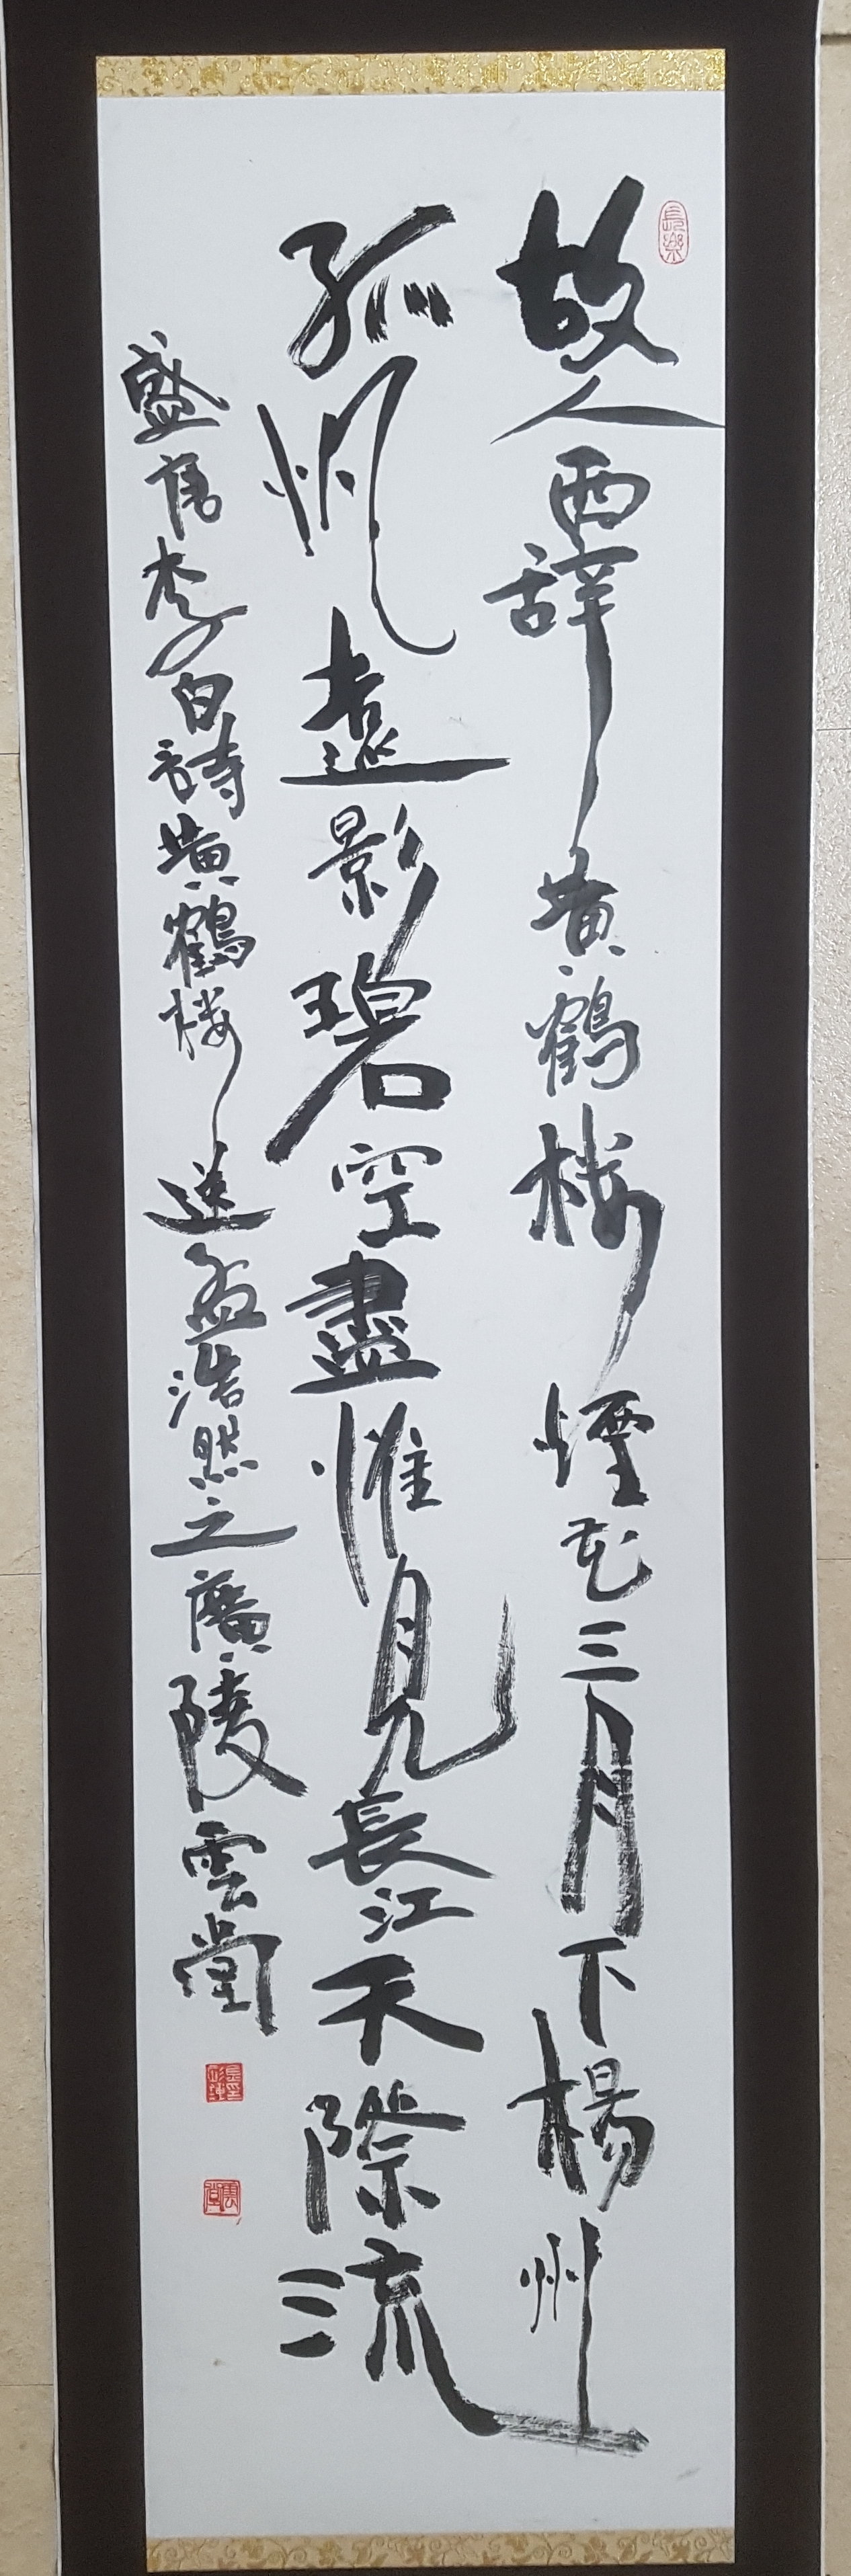 長樂
故人西辞黄鶴楼煙花三月下楊州
孤帆遠影碧空盡惟見長江天際流
盛唐李白詩黄鶴楼送孟浩然之廣陵雲堂